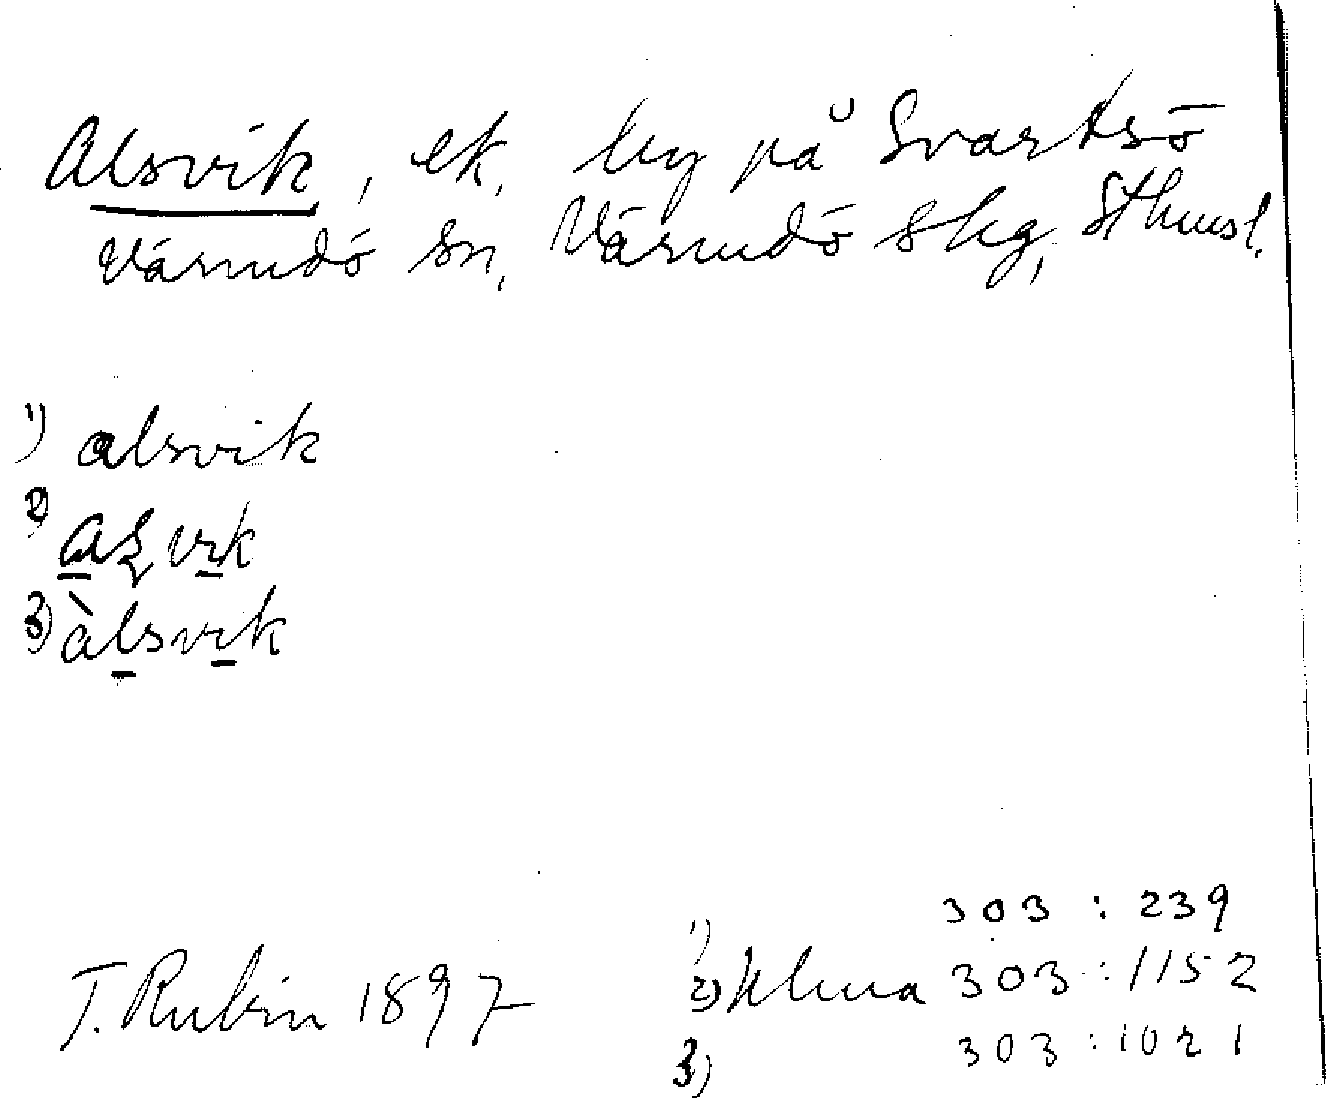 Alsvik, ek, by på Svartsö
Värmdö sn, Värmdö skg, Sthmsl.
1) alsvik
2) aʂvɪk
3) àlsvɪk
303 : 239
1)
T. Rubin 1897 2) 303 : 1152
3) 303 : 1021